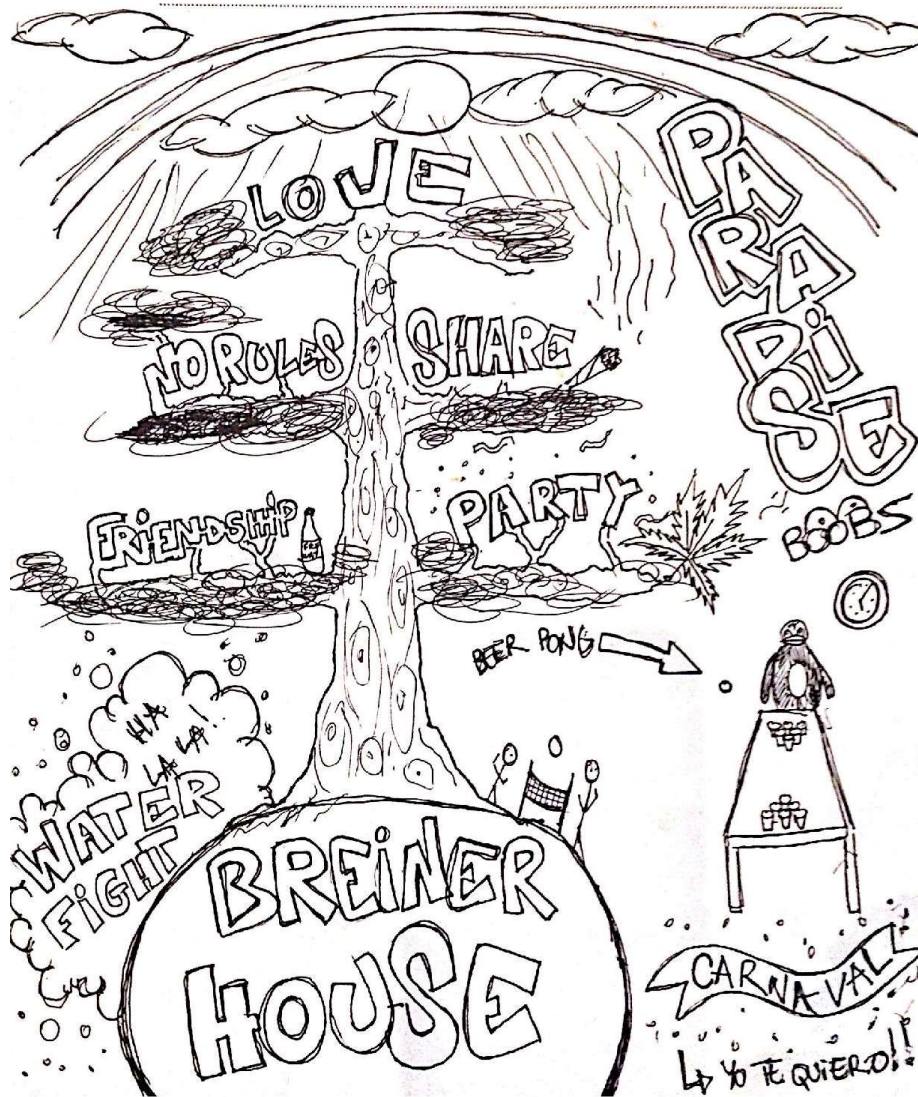 LOVE
PARADiSE
NO RULES
SHARE
FRiENDSHiP
PARTY
BOOBS
BEER PONG
HA
LA LA!
WATER
FiGHT
BREiNER
HOUSE
CARNAVAL
YO TE QUiERO!!